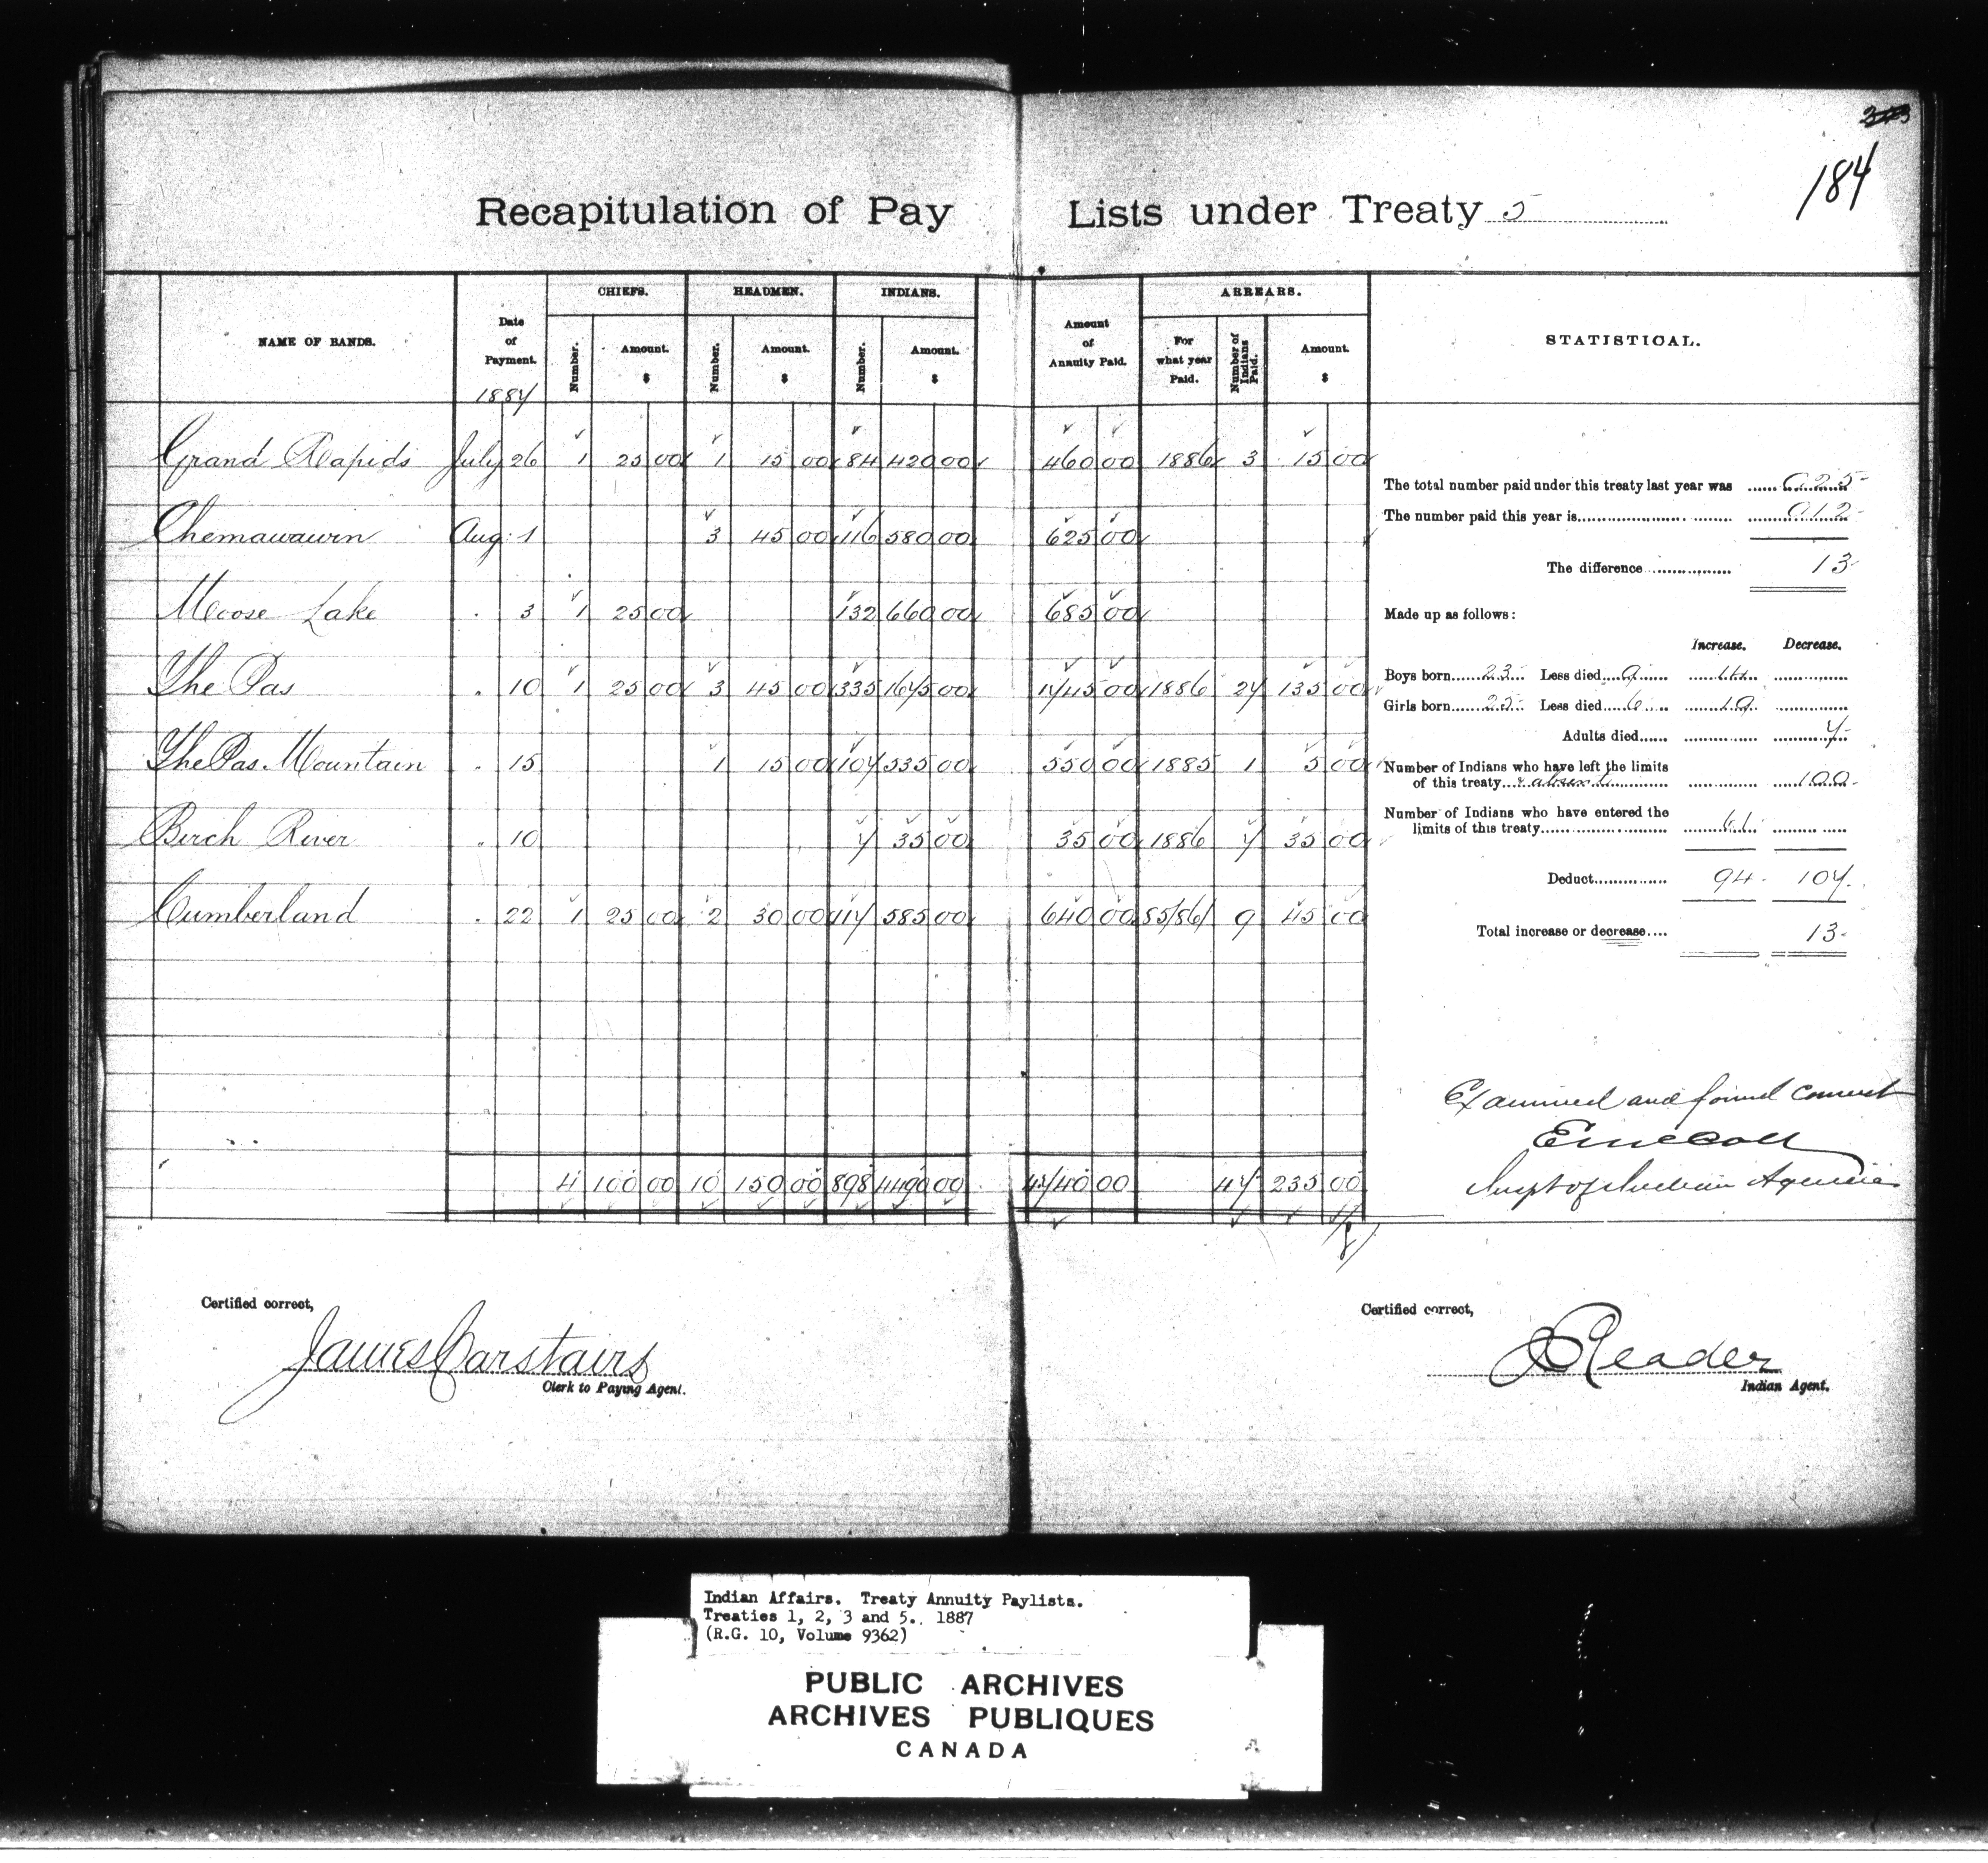 184
Recapitulation of Pay Lists under Treaty 5
NAME OF BANDS. Date of Payment. CHIEFS. HEADMEN. INDIANS. Amount of Annuity Paid. ARREARS. STATISTICAL.
Number. Amount. $ Number. Amount. $ Number. Amount. $ For what year Paid. Number of Indians Paid. Amount. $
1887
Grand Rapids July 26 1 25 00 1 15 00 84 420 00 460 00 1886 3 15 00
Chemawawin Aug. 1 3 45 00 116 580 00 625 00
Moose Lake . 3 1 25 00 132 660 00 685 00
The Pas . 10 1 25 00 3 45 00 335 1675 00 1745 00 1886 27 135 00
The Pas Mountain . 15 1 15 00 107 535 00 550 00 1885 1 5 00
Birch River . 10 7 35 00 35 00 1886 7 35 00
Cumberland . 22 1 25 00 2 30 00 117 585 00 640 00 85/86 9 45 00
4 100 00 10 150 00 898 4490 00 4740 00 47 235 00
The total number paid under this treaty last year was 925
The number paid this year is 912
The difference 13
Made up as follows:
Increase. Decrease.
Boys born 23 Less died 9 14
Girls born 25 Less died 6 19
Adults died 7
Number of Indians who have left the limits
of this treaty & absent 100
Number of Indians who have entered the
limits of this treaty 61
Deduct 94 107
Total increase or decrease 13
Examined and found correct
E McColl
Inspt of Indian Agencies
Certified correct,
James Carstairs
Clerk to Paying Agent.
Certified correct,
J Reader
Indian Agent.
Indian Affairs. Treaty Annuity Paylists.
Treaties 1, 2, 3 and 5. 1887
(R.G. 10, Volume 9362)
PUBLIC ARCHIVES
ARCHIVES PUBLIQUES
CANADA